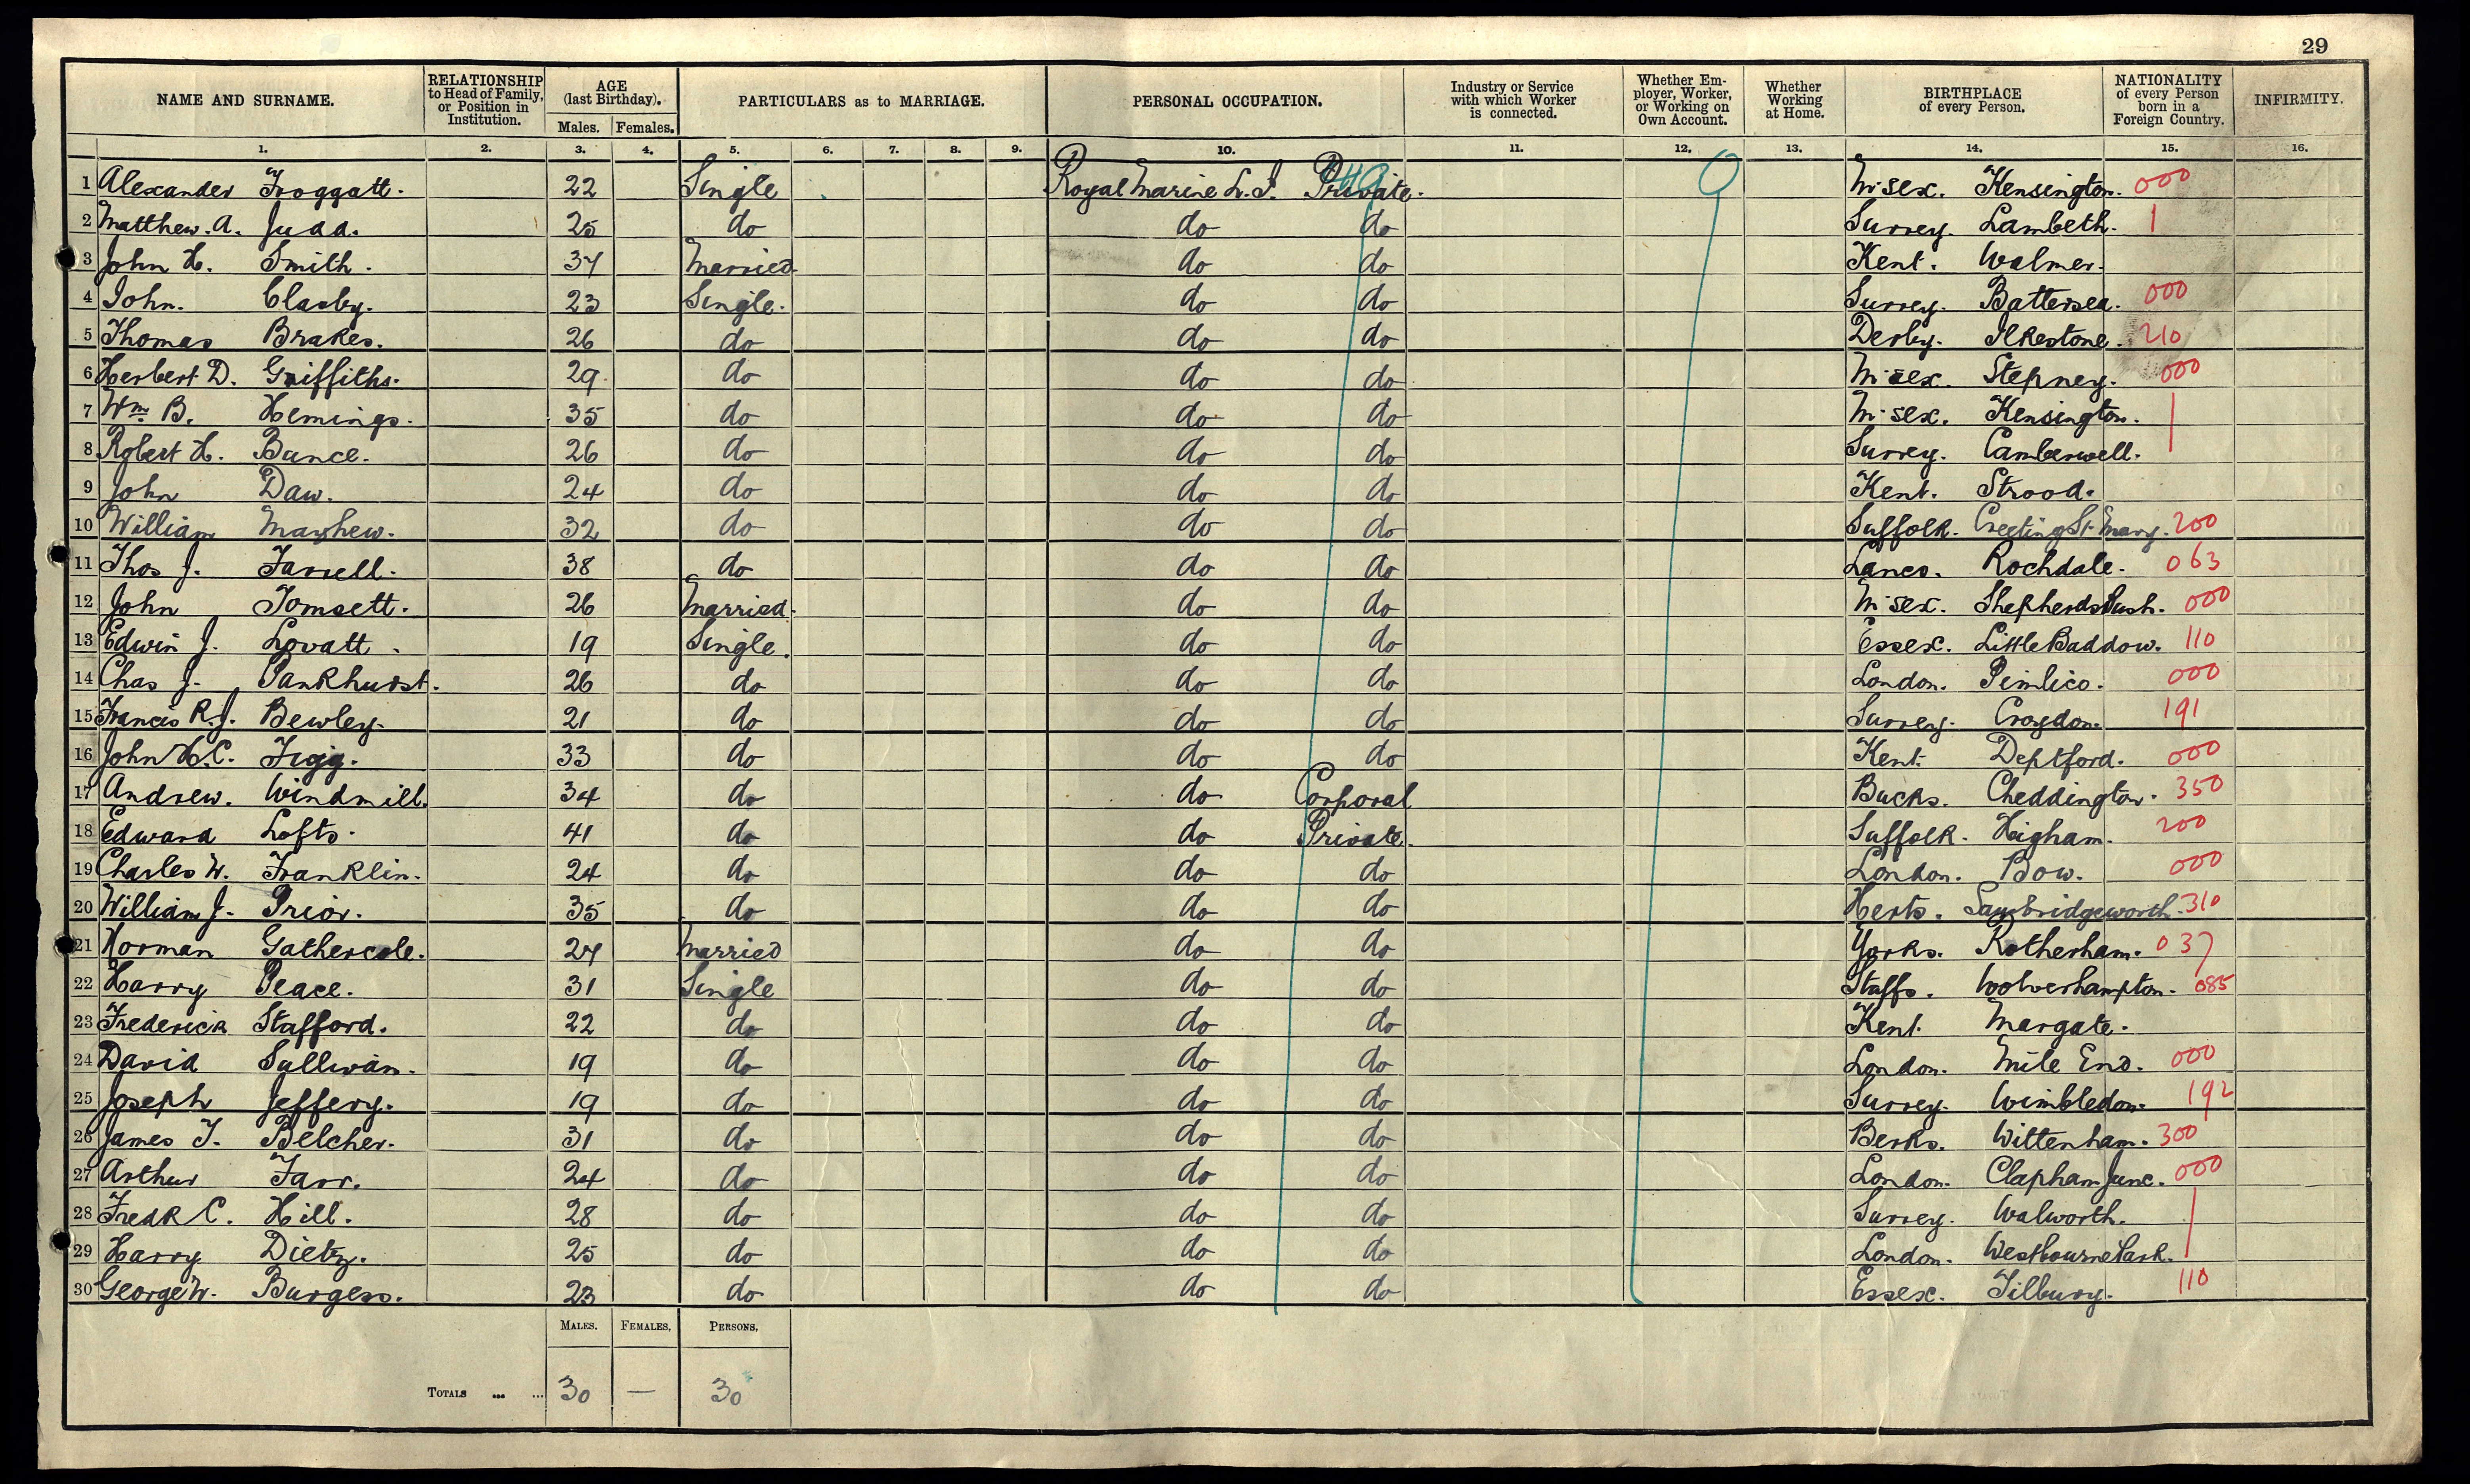 29
NAME AND SURNAME. RELATIONSHIP to Head of Family, or Position in Institution. AGE (last Birthday). Males. Females. PARTICULARS as to MARRIAGE. PERSONAL OCCUPATION. Industry or Service with which Worker is connected. Whether Employer, Worker, or Working on Own Account. Whether Working at Home. BIRTHPLACE of every Person. NATIONALITY of every Person born in a Foreign Country. INFIRMITY.
1. 2. 3. 4. 5. 6. 7. 8. 9. 10. 11. 12. 13. 14. 15. 16.
1 Alexander Froggatt. 22 Single Royal Marine L. I. Private. M'sex. Kensington. 000
2 Matthew. A. Judd. 25 do do do Surrey. Lambeth.
3 John H. Smith. 37 Married do do Kent. Walmer.
4 John. Clasby. 23 Single. do do Surrey. Battersea. 000
5 Thomas Brakes. 26 do do do Derby. Ilkestone. 210
6 Herbert D. Griffiths. 29. do do do M'sex. Stepney. 000
7 Wm B. Hemings. 35 do do do M'sex. Kensington.
8 Robert H. Bance. 26 do do do Surrey. Camberwell.
9 John Daw. 24 do do do Kent. Strood.
10 William Mayhew. 32 do do do Suffolk. Creeting St Mary. 200
11 Thos J. Farrell. 38 do do do Lancs. Rochdale. 063
12 John Tomsett. 26 Married. do do M'sex. Shepherds Bush. 000
13 Edwin J. Lovatt. 19 Single. do do Essex. Little Baddow. 110
14 Chas J. Pankhurst. 26 do do do London. Pimlico. 000
15 Francis R. J. Bewley. 21 do do do Surrey. Croydon. 191
16 John H. C. Figg. 33 do do do Kent. Deptford. 000
17 Andrew. Windmill. 34 do do Corporal Bucks. Cheddington. 350
18 Edward Lofts. 41 do do Private. Suffolk. Higham. 200
19 Charles W. Franklin. 24 do do do London. Bow. 000
20 William J. Prior. 35 do do do Herts. Sawbridgeworth. 310
21 Horman Gathercole. 27 Married do do Yorks. Rotherham. 037
22 Harry Peace. 31 Single do do Staffs. Wolverhampton. 085
23 Frederick Stafford. 22 do do do Kent. Margate.
24 David Sullivan. 19 do do do London. Mile End. 000
25 Joseph Jeffery. 19 do do do Surrey. Wimbledon. 192
26 James T. Belcher. 31 do do do Berks. Wittenham. 300
27 Arthur Farr. 24 do do do London. Clapham Junc. 000
28 Fredk C. Hill. 28 do do do Surrey. Walworth.
29 Harry Dietz. 25 do do do London. Westbourne Park.
30 George W. Burgess. 23 do do do Essex. Tilbury. 110
MALES. FEMALES. PERSONS.
TOTALS ... ... 30 — 30